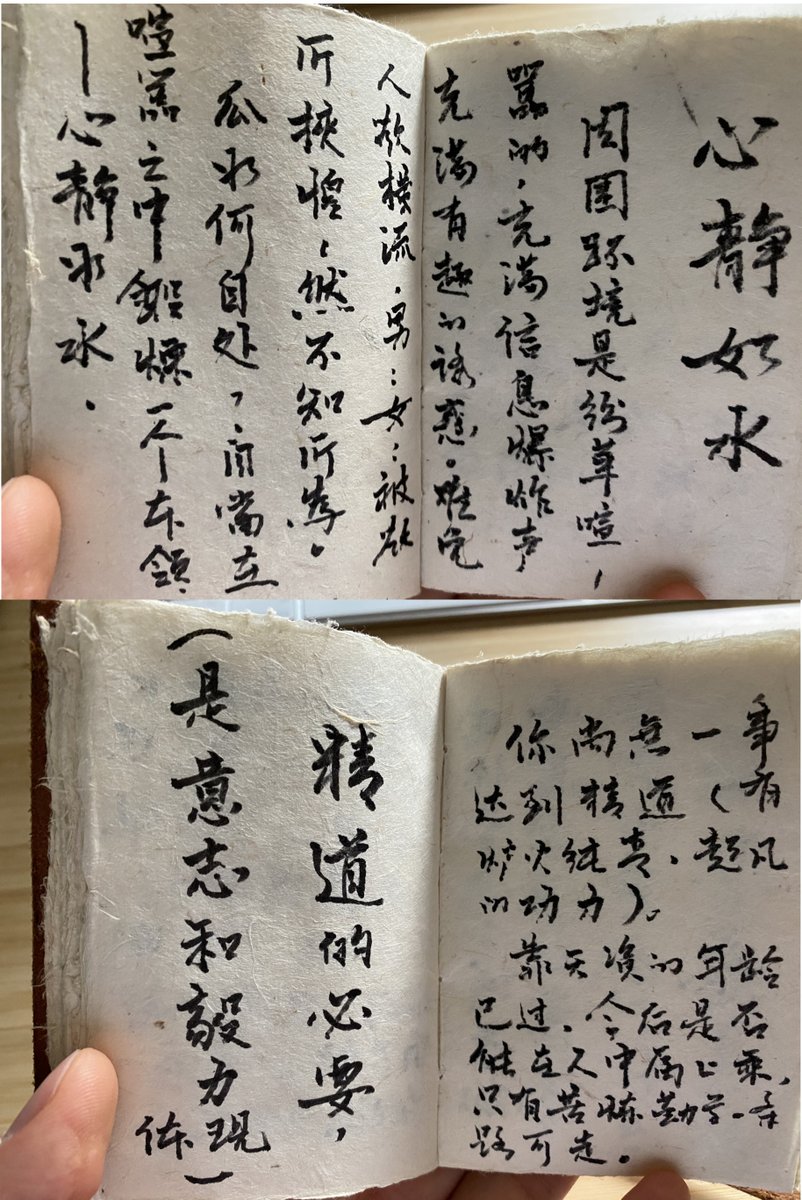 心静如水
周围环境是纷華喧，
嚣的，充满信息爆炸声，
充满有趣的诱惑。难免
人欲横流，男：女：被欲
所挟惶：然不知所为。
如何自处，自當在
喧嚣之中鍛煉一个本领
—心静如水。
精道的必要，
（是意志和毅力体现）
你尚無一事
达到精道（有
炉火纯青、超凡
的功力）。
靠天资的年龄
已过，今后是否
能在人中属上乘，
只有苦炼勤学一条
路可走。